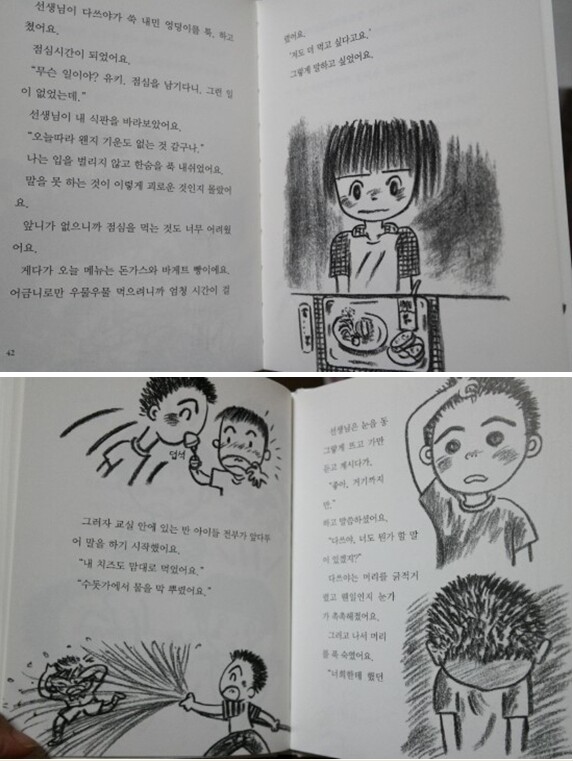 선생님이 다쓰야가 쑥 내민 엉덩이를 툭, 하고
쳤어요.
점심시간이 되었어요.
"무슨 일이야? 유키. 점심을 남기다니. 그런 일
이 없었는데."
선생님이 내 식판을 바라보았어요.
"오늘따라 왠지 기운도 없는 것 같구나."
나는 입을 벌리지 않고 한숨을 푹 내쉬었어요.
말을 못 하는 것이 이렇게 괴로운 것인지 몰랐어
요.
앞니가 없으니까 점심을 먹는 것도 너무 어려웠
어요.
게다가 오늘 메뉴는 돈가스와 바게트 빵이에요.
어금니로만 우물우물 먹으려니까 엄청 시간이 걸
42
렸어요.
'저도 더 먹고 싶다고요.'
그렇게 말하고 싶었어요.
덥석
그러자 교실 안에 있는 반 아이들 전부가 앞다투
어 말을 하기 시작했어요.
"내 치즈도 맘대로 먹었어요."
"수돗가에서 물을 막 뿌렸어요."
선생님은 눈을 동
그렇게 뜨고 가만
듣고 계시다가,
"좋아, 거기까지
만."
하고 말씀하셨어요.
"다쓰야, 너도 뭔가 할 말
이 있겠지?"
다쓰야는 머리를 긁적거
렸고 웬일인지 눈가
가 촉촉해졌어요.
그러고 나서 머리
를 푹 숙였어요.
"너희한테 했던